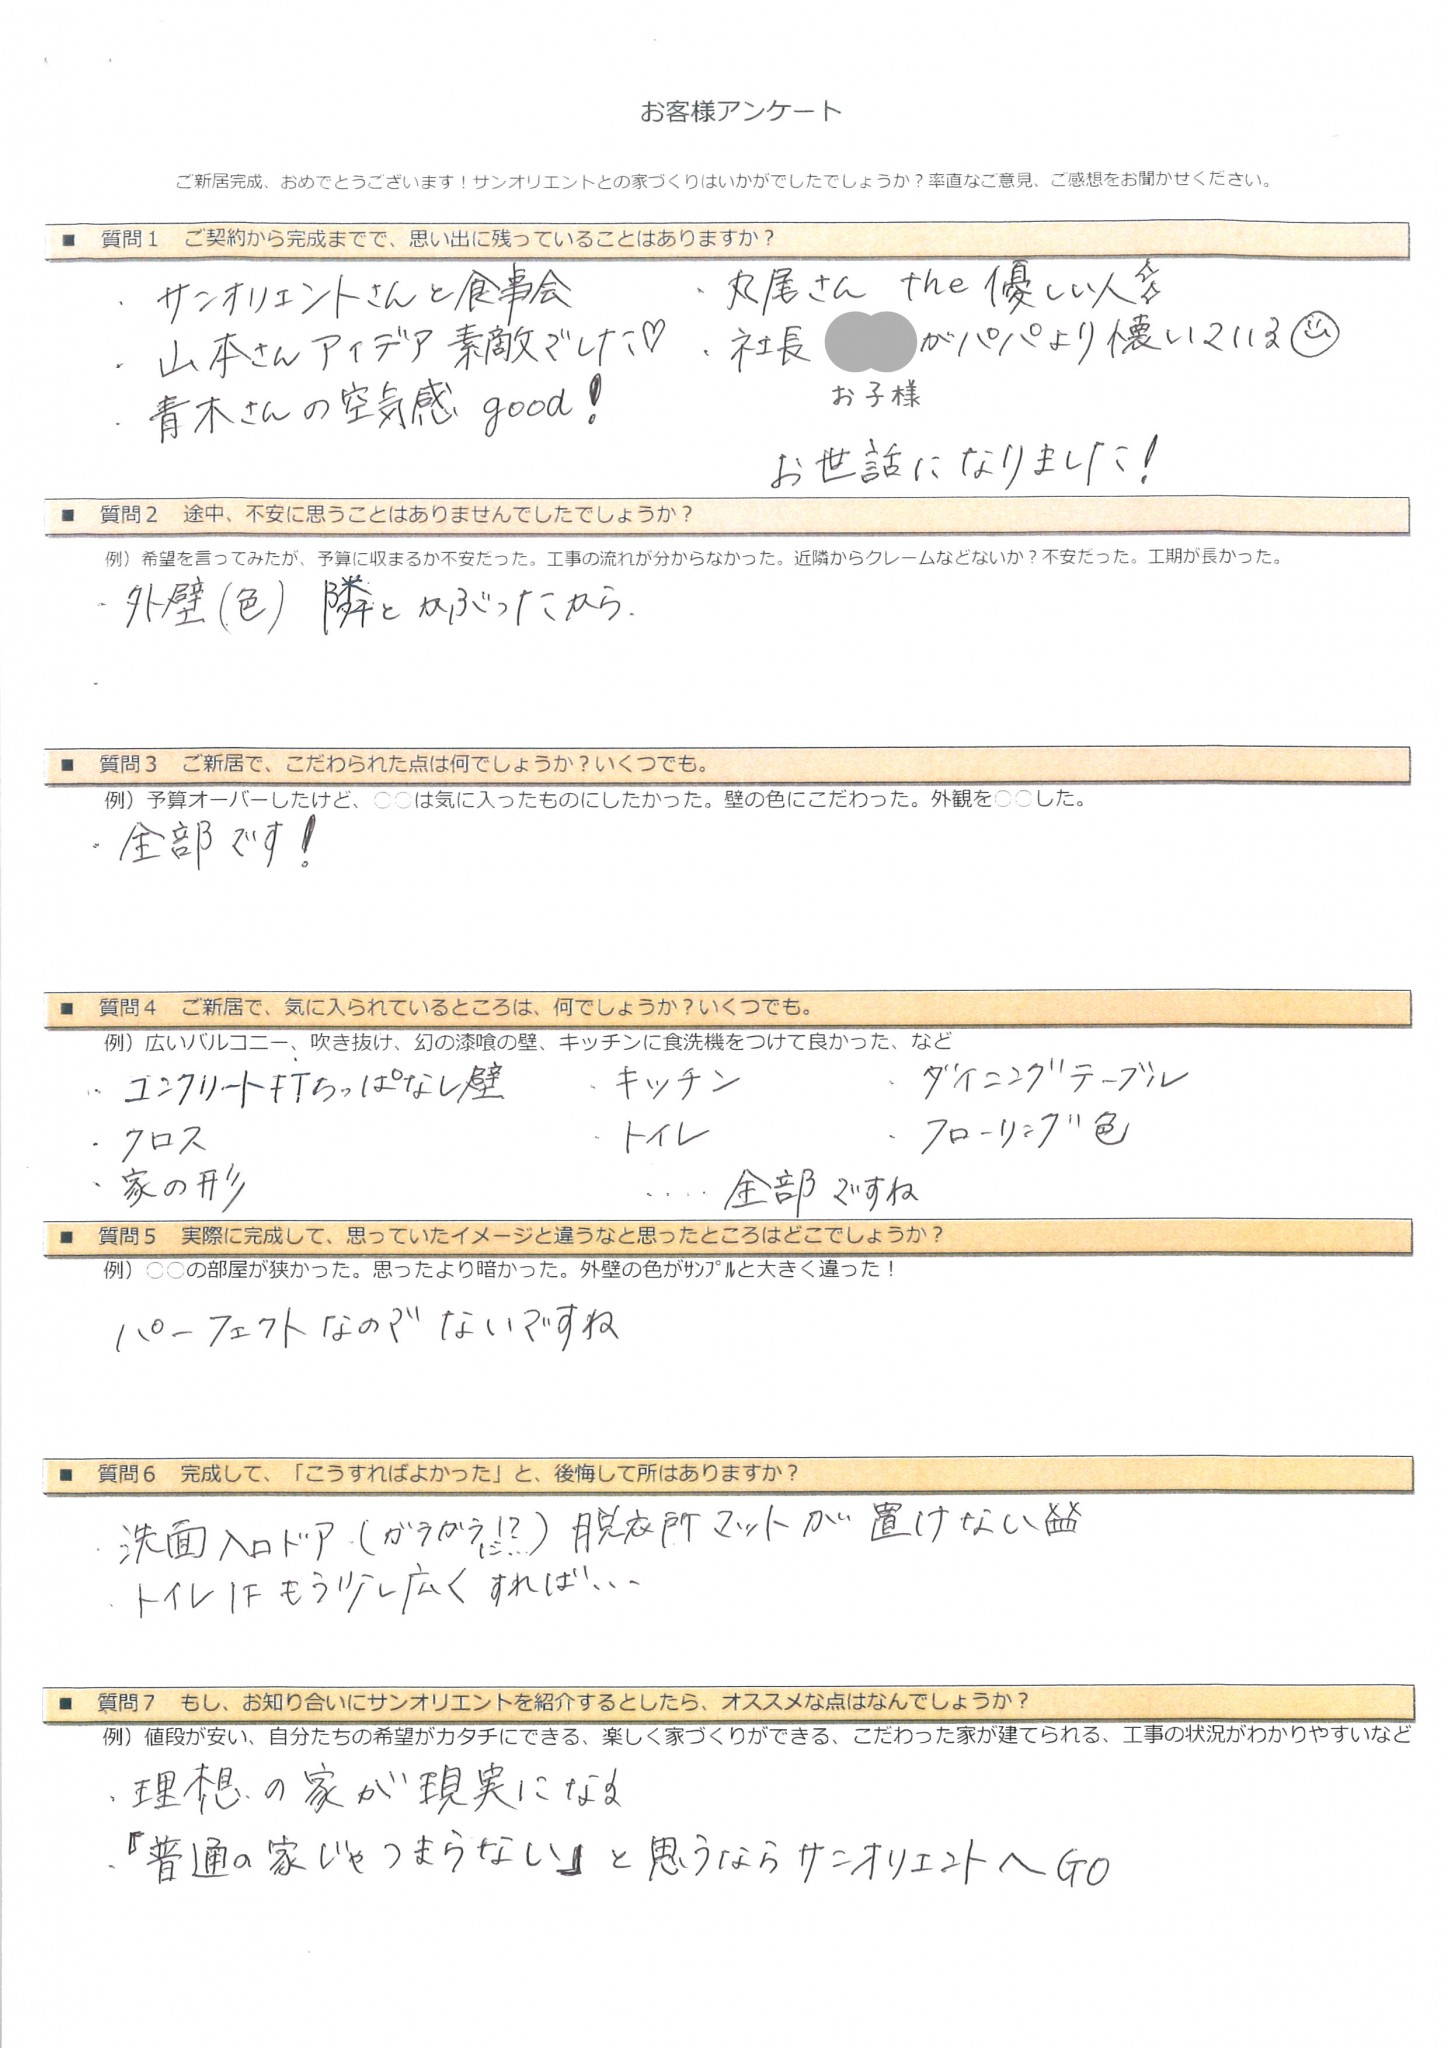 お客様アンケート
ご新居完成、おめでとうございます！サンオリエントとの家づくりはいかがでしたでしょうか？率直なご意見、ご感想をお聞かせください。
■ 質問１　ご契約から完成までで、思い出に残っていることはありますか？
・サンオリエントさんと食事会
・山本さんアイデア素敵でした♡
・青木さんの空気感 good！
・丸尾さん the 優しい人
・社長 がパパより懐いている
お子様
お世話になりました！
■ 質問２　途中、不安に思うことはありませんでしたでしょうか？
例）希望を言ってみたが、予算に収まるか不安だった。工事の流れが分からなかった。近隣からクレームなどないか？不安だった。工期が長かった。
・外壁（色） 隣とかぶったから.
■ 質問３　ご新居で、こだわられた点は何でしょうか？いくつでも。
例）予算オーバーしたけど、○○は気に入ったものにしたかった。壁の色にこだわった。外観を○○した。
・全部です！
■ 質問４　ご新居で、気に入られているところは、何でしょうか？いくつでも。
例）広いバルコニー、吹き抜け、幻の漆喰の壁、キッチンに食洗機をつけて良かった、など
・コンクリート打ちっぱなし壁 ・キッチン ・ダイニングテーブル
・クロス ・トイレ ・フローリング色
・家の形 ‥‥全部ですね
■ 質問５　実際に完成して、思っていたイメージと違うなと思ったところはどこでしょうか？
例）○○の部屋が狭かった。思ったより暗かった。外壁の色がｻﾝﾌﾟﾙと大きく違った！
パーフェクトなので ないですね
■ 質問６　完成して、「こうすればよかった」と、後悔して所はありますか？
・洗面入口ドア（ガラガラ!?に…）脱衣所マットが置けない
・トイレ1F もう少し広くすれば…
■ 質問７　もし、お知り合いにサンオリエントを紹介するとしたら、オススメな点はなんでしょうか？
例）値段が安い、自分たちの希望がカタチにできる、楽しく家づくりができる、こだわった家が建てられる、工事の状況がわかりやすいなど
・理想の家が現実になる
・『普通の家じゃつまらない』と思うならサンオリエントへGO